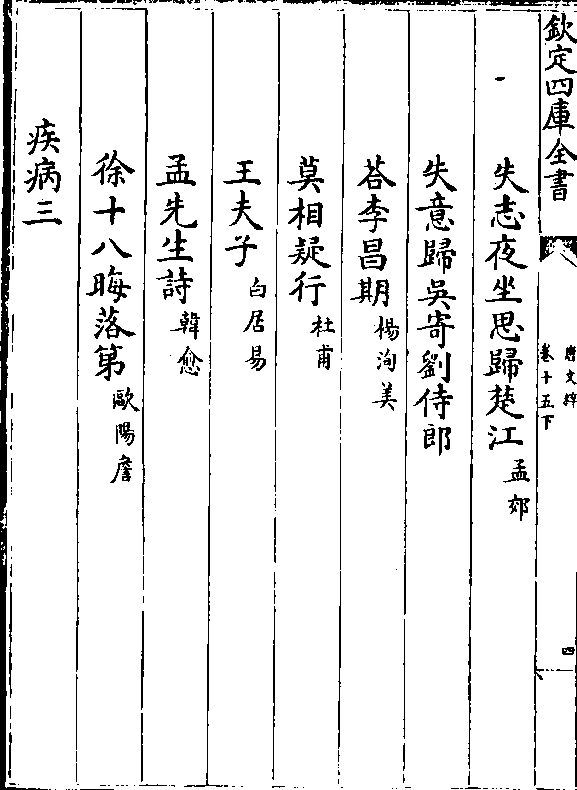 欽定四庫全書
唐文粹
卷十五下
四
失志夜坐思歸楚江 孟郊
失意歸吳寄劉侍郎
荅李昌期 楊洵美
莫相疑行 杜甫
王夫子 白居易
孟先生詩 韓愈
徐十八晦落第 歐陽詹
疾病三